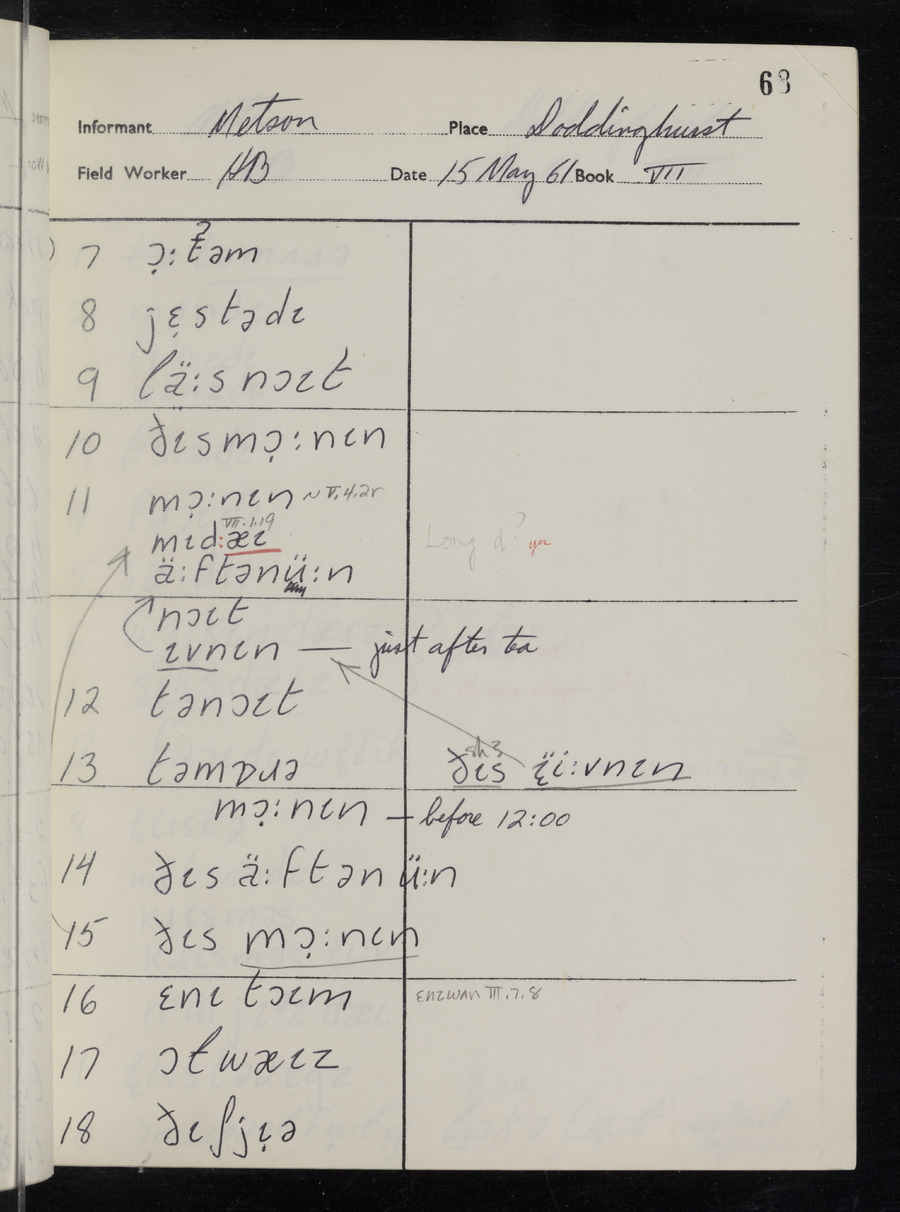 68
Informant Metson Place Doddinghurst
Field Worker HB Date 15 May 61 Book VII
7 ɔ̣:tʔəm
8 jɛ̣stədɪ
9 lä:snɔɪt
10 ðɪsmɔ̣:nɪn
11 mɔ̣:nɪn ~ V.4.2r
VII.1.19
mɪd:æɪ Long d? yes
ä:ftənü:n
nɔɪt
ɪvnɪn — just after tea
12 tənɔɪt
13 təmɒɹə ðɪs ɪ̈i:vnɪn
sh?
mɔ̣:nɪn — before 12:00
14 ðɪs ä:ftənü:n
15 ðɪs mɔ̣:nɪn
16 ɛnɪ tɔɪm ɛnɪwan III.7.8
17 ɔɫwæɪz
18 ðɪʃjɪ̣ə